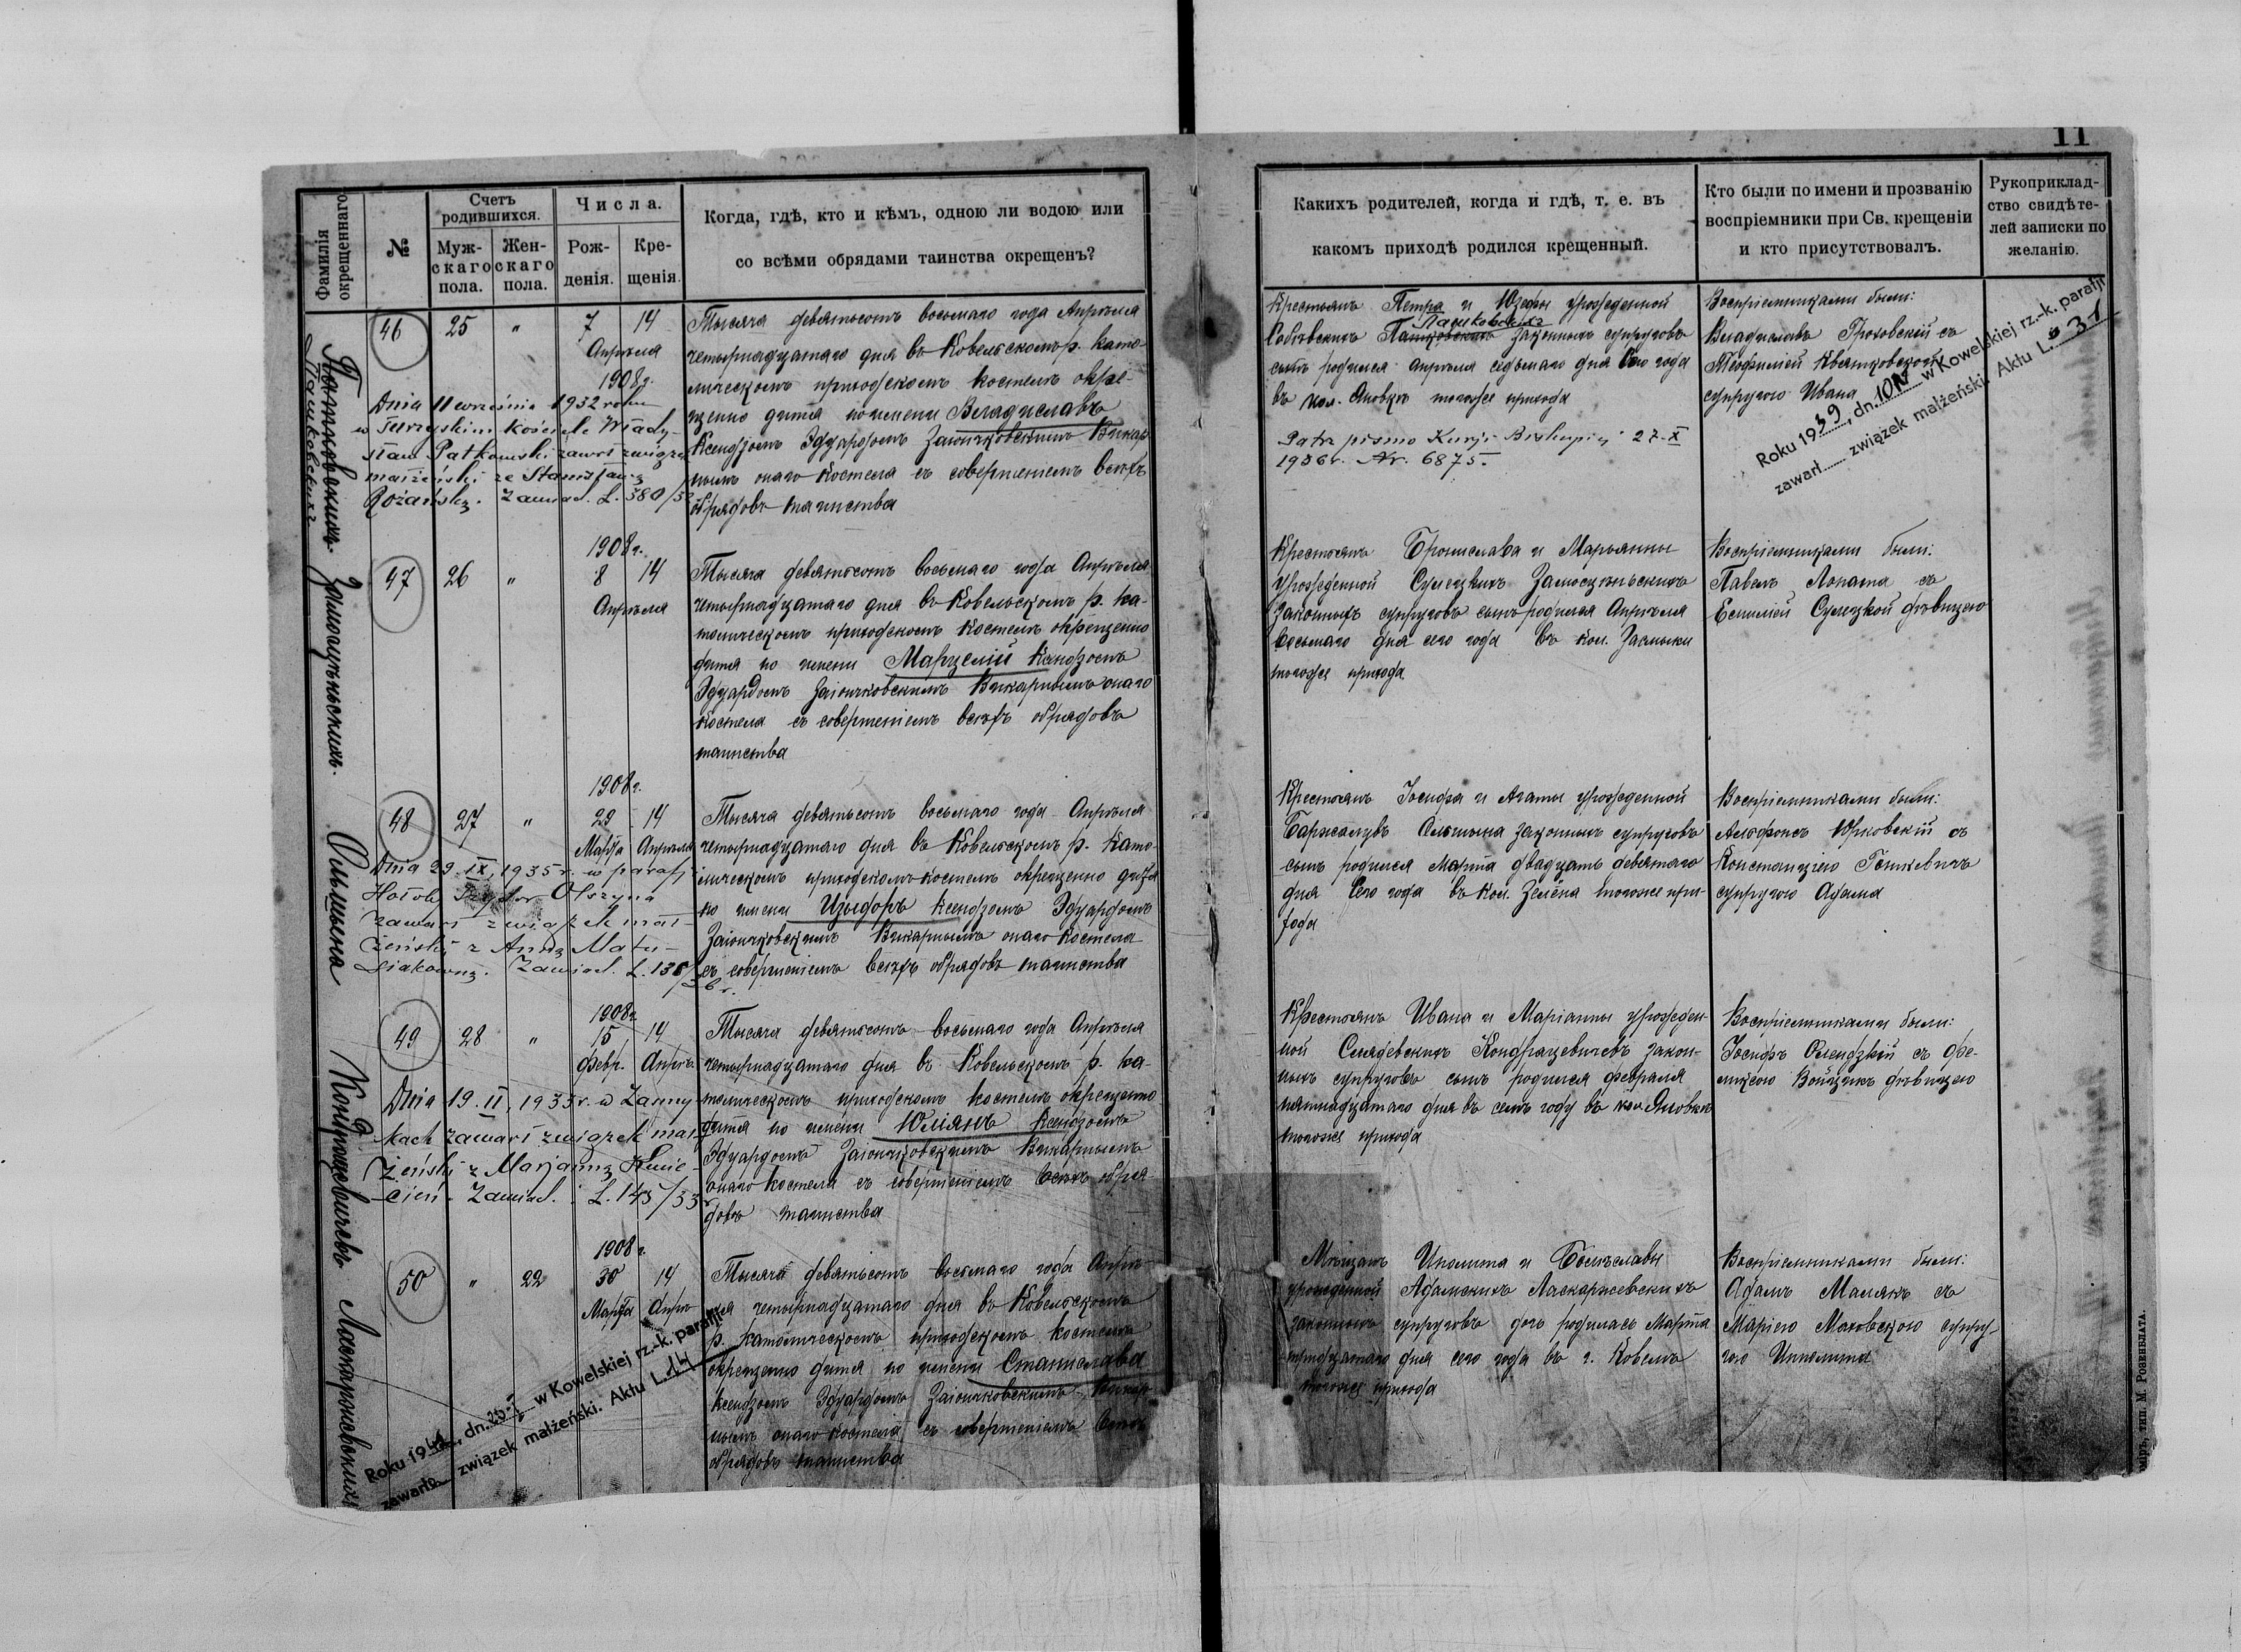 11
Фамилія окрещеннаго
№
Счетъ родившихся.
Муж-скаго пола.
Жен-скаго пола.
Числа.
Рож-денія.
Кре-щенія.
Когда, гдѣ, кто и кѣмъ, одною ли водою или
со всѣми обрядами таинства окрещенъ?
Какихъ родителей, когда и гдѣ, т. е. въ
какомъ приходѣ родился крещенный.
Кто были по имени и прозванію
воспріемники при Св. крещеніи
и кто присутствовалъ.
Рукоприклад-
ство свидѣте-
лей записки по
желанію.
46 25 " 7 14
Апрѣля
1908 г.
Dnia 11 września 1932 roku
w Turzyskim kościele Włady-
sław Patkowski zawarł związek
małżeński ze Stanisławą
Rożańską. Zawiad. L. 380/3
Тысяча девятьсотъ восьмаго года Апрѣля
четырнадцатаго дня въ Ковельскомъ р. като-
лическомъ приходскомъ костелѣ окре-
щено дитя по имени Владиславъ
Ксендзомъ Эдуардомъ Заіончковскимъ Викар-
нымъ онаго костела съ совершеніемъ всѣхъ
обрядовъ таинства
Крестьянъ Петра и Юзефы урожденной
законныхъ супруговъ
сынъ родился апрѣля седьмаго дня сего года
въ кол. Яновкѣ тогоже прихода
Patrz pismo Kurji Biskupiej 27-X
1936 r. Nr. 6875.
Воспріемниками были:
Владиславъ Гроховскій съ
Теофилией Квятковской
супругою Ивана
Roku 1939, dn. 10 IV w Kowelskiej rz.-k. parafji
zawarł związek małżeński. Aktu L. 31
47 1908 г.
26 " 8 14
Апрѣля
Замосцѣньскихъ.
Тысяча девятьсотъ восьмаго года Апрѣля
четырнадцатаго дня въ Ковельскомъ р. ка-
толическомъ приходскомъ костелѣ окрещено
дитя по имени Марцелій Ксендзомъ
Эдуардомъ Заіончковскимъ Викарнымъ онаго
костела съ совершеніемъ всѣхъ обрядовъ
таинства
Крестьянъ Бронислава и Марьянны
урожденной Сулецкихъ Замосцѣньскихъ
законныхъ супруговъ сынъ родился Апрѣля
восьмаго дня сего года въ кол. Засмыки
тогоже прихода
Воспріемниками были:
Павелъ Лопата съ
Емилией Сулецкой дѣвицею
1908 г.
48 27 " 29 14
Марта Апрѣля
Dnia 29.IX.1935 r. w parafji
Hołoby Izydor Olszyna
zawarł związek mał-
żeński z Anną Matu-
siakówną. Zawiad. L. 138/
36 r.
Ольшына
Тысяча девятьсотъ восьмаго года Апрѣля
четырнадцатаго дня въ Ковельскомъ р. като-
лическомъ приходскомъ костелѣ окрещено дитя
по имени Изыдоръ Ксендзомъ Эдуардомъ
Заіончковскимъ Викарнымъ онаго костела
съ совершеніемъ всѣхъ обрядовъ таинства
Крестьянъ Іосифа и Агаты урожденной
Ольшына законныхъ супруговъ
сынъ родился Марта двадцать девятаго
дня сего года въ кол. Зелёна тогоже при-
хода
Воспріемниками были:
Альфонсъ Юрковскій съ
Констанціею Генкевичъ
супругою Адама
1908 г.
49 28 " 15 14
Февр. Апрѣ.
Dnia 19.II.1933 r. w Zasmy-
kach zawarł związek mał-
żeński z Marjanną Kwie-
cień. Zawiad. L. 145/33
Кондрацевичевъ
Тысяча девятьсотъ восьмаго года Апрѣля
четырнадцатаго дня въ Ковельскомъ р. ка-
толическомъ приходскомъ костелѣ окрещено
дитя по имени Юліянъ Ксендзомъ
Эдуардомъ Заіончковскимъ Викарнымъ
онаго костела съ совершеніемъ всѣхъ обря-
довъ таинства
Крестьянъ Ивана и Маріанны урожден-
ной Кондрацевичевъ закон-
ныхъ супруговъ сынъ родился февраля
пятнадцатаго дня въ семъ году въ кол. Яновкѣ
тогоже прихода
Воспріемниками были:
Іосифъ Олендзкій съ Фе-
ликсою Войцикъ дѣвицею
1908 г.
50 " 22 30 14
Марта Апрѣ
Roku 1941, dn. 25-I w Kowelskiej rz.-k. parafji
zawarła związek małżeński. Aktu L. 14
Ласкаржевскихъ
Тысяча девятьсотъ восьмаго года Апрѣ-
ля четырнадцатаго дня въ Ковельскомъ
р. католическомъ приходскомъ костелѣ
окрещено дитя по имени Станислава
Ксендзомъ Эдуардомъ Заіончковскимъ Викар-
нымъ онаго костела съ совершеніемъ всѣхъ
обрядовъ таинства
Мѣщанъ Иполита и Болеславы
урожденной Адамскихъ Ласкаржевскихъ
законныхъ супруговъ дочь родилась Марта
тридцатаго дня сего года въ г. Ковелѣ
тогоже прихода
Воспріемниками были:
Адамъ Малякъ съ
Маріею Маковскою супру-
гою Ипполита
тип. М. Розенблата.